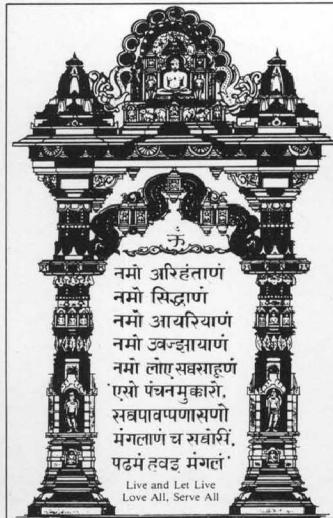 ॐ
नमो अरिहंताणं
नमो सिद्धाणं
नमो आयरियाणं
नमो उवज्झायाणं
नमो लोए सव्वसाहुणं
एसो पंचनमुक्कारो,
सव्वपावप्पणासणो
मंगलाणं च सव्वेसिं,
पढमं हवइ मंगलं
Live and Let Live
Love All, Serve All